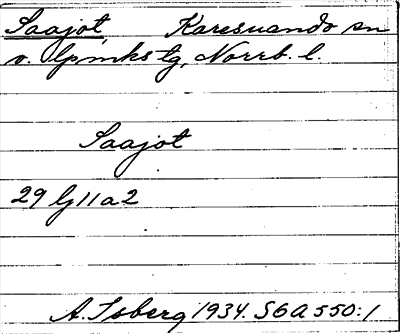 Saajot, Karesuando sn
v. lpmks tg, Norrb. l.
Saajot
29 lj 11 a 2
A. Isberg 1934. S6A550:1